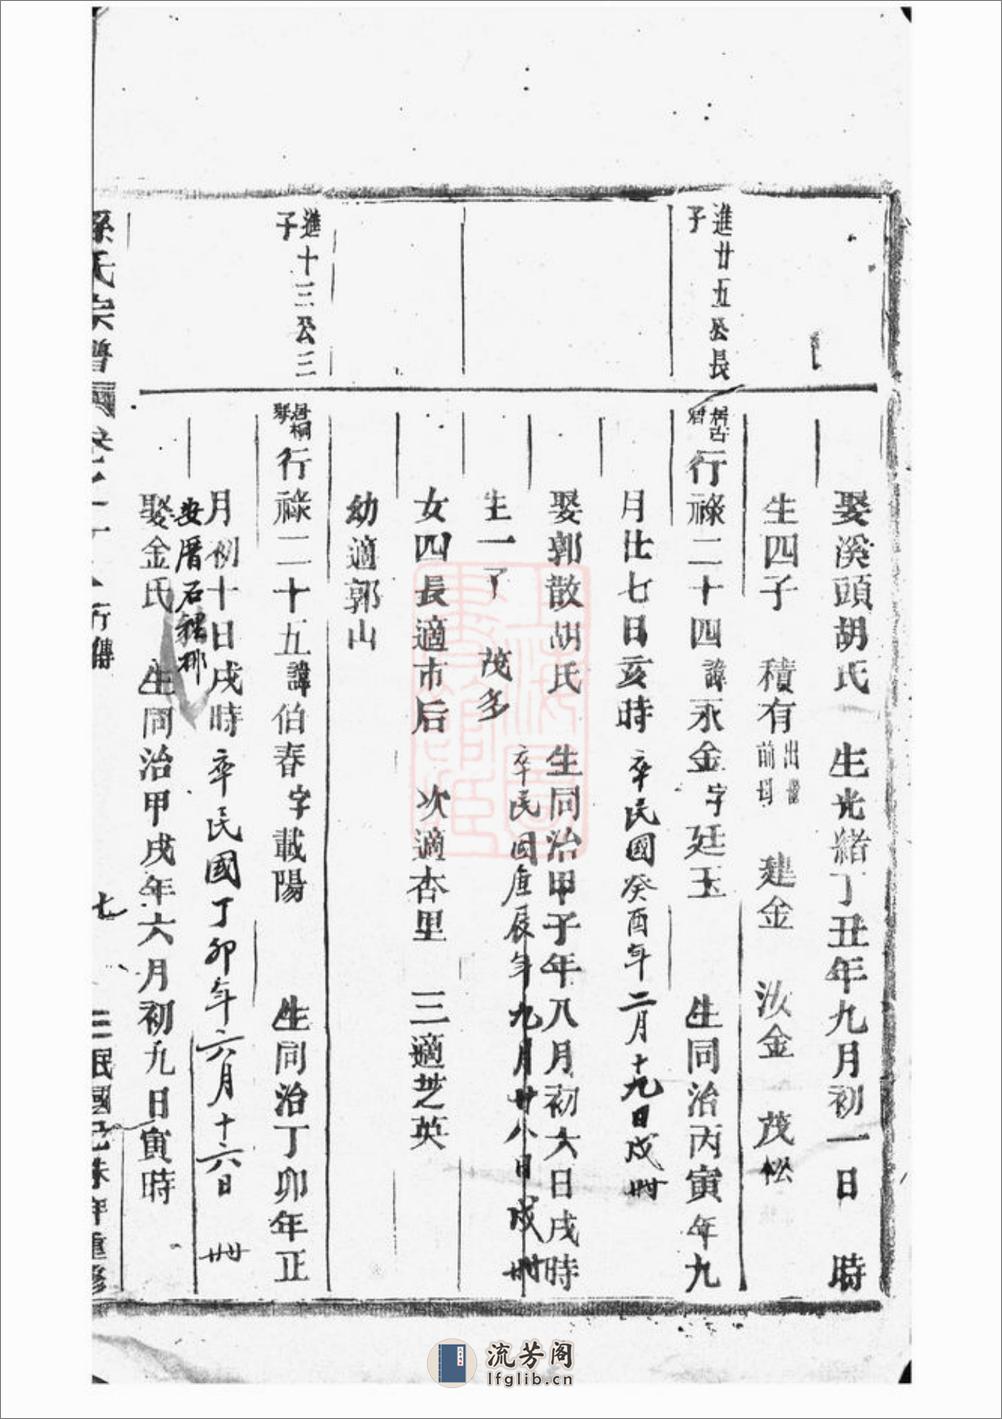 娶溪頭胡氏 生光緒丁丑年九月初一日 時
生四子 積有 出繼前母 建金 汝金 茂松
進廿五公長子
行祿二十四諱永金字廷玉 生同治丙寅年九
月廿七日亥時 卒民國癸酉年二月十九日戌时
娶郭散胡氏 生同治甲子年八月初六日戌時
卒民国庚辰年九月廿八日戌时
生一子 茂多
女四長適市后 次適杏里 三適芝英
幼適郭山
進十三公三子
行祿二十五諱伯春字載陽 生同治丁卯年正
月初十日戌時 卒民國丁卯年六月十六日 时
娶金氏 生同治甲戌年六月初九日寅時
孫氏宗譜 行傳 七 民國己未年重修
上海圖書館藏
流芳阁
lfglib.cn